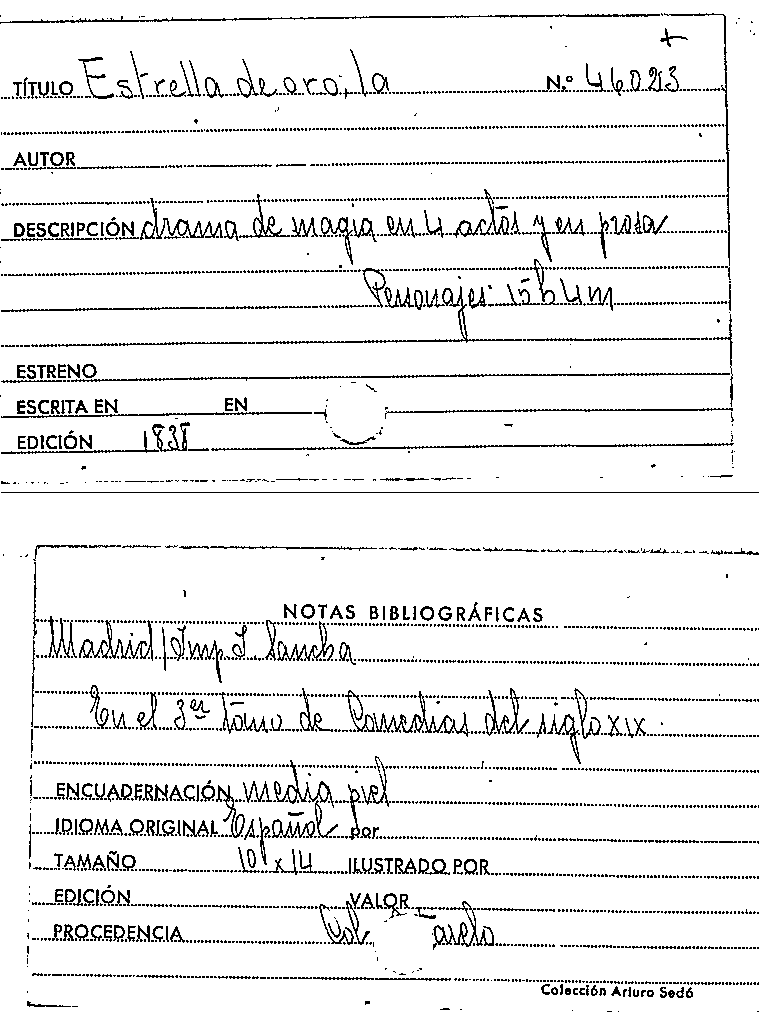 TÍTULO Estrella de oro, la N.º 46023
AUTOR
DESCRIPCIÓN drama de magia en 4 actos y en prosa
Personajes 15 h 4 m
ESTRENO
ESCRITA EN EN
EDICIÓN 1838
NOTAS BIBLIOGRÁFICAS
Madrid/Imp I. Sancha
En el 3er tomo de Comedias del siglo XIX.
ENCUADERNACIÓN media piel
IDIOMA ORIGINAL Español por
TAMAÑO 10 x 14 ILUSTRADO POR
EDICIÓN VALOR
PROCEDENCIA Col
Colección Arturo Sedó